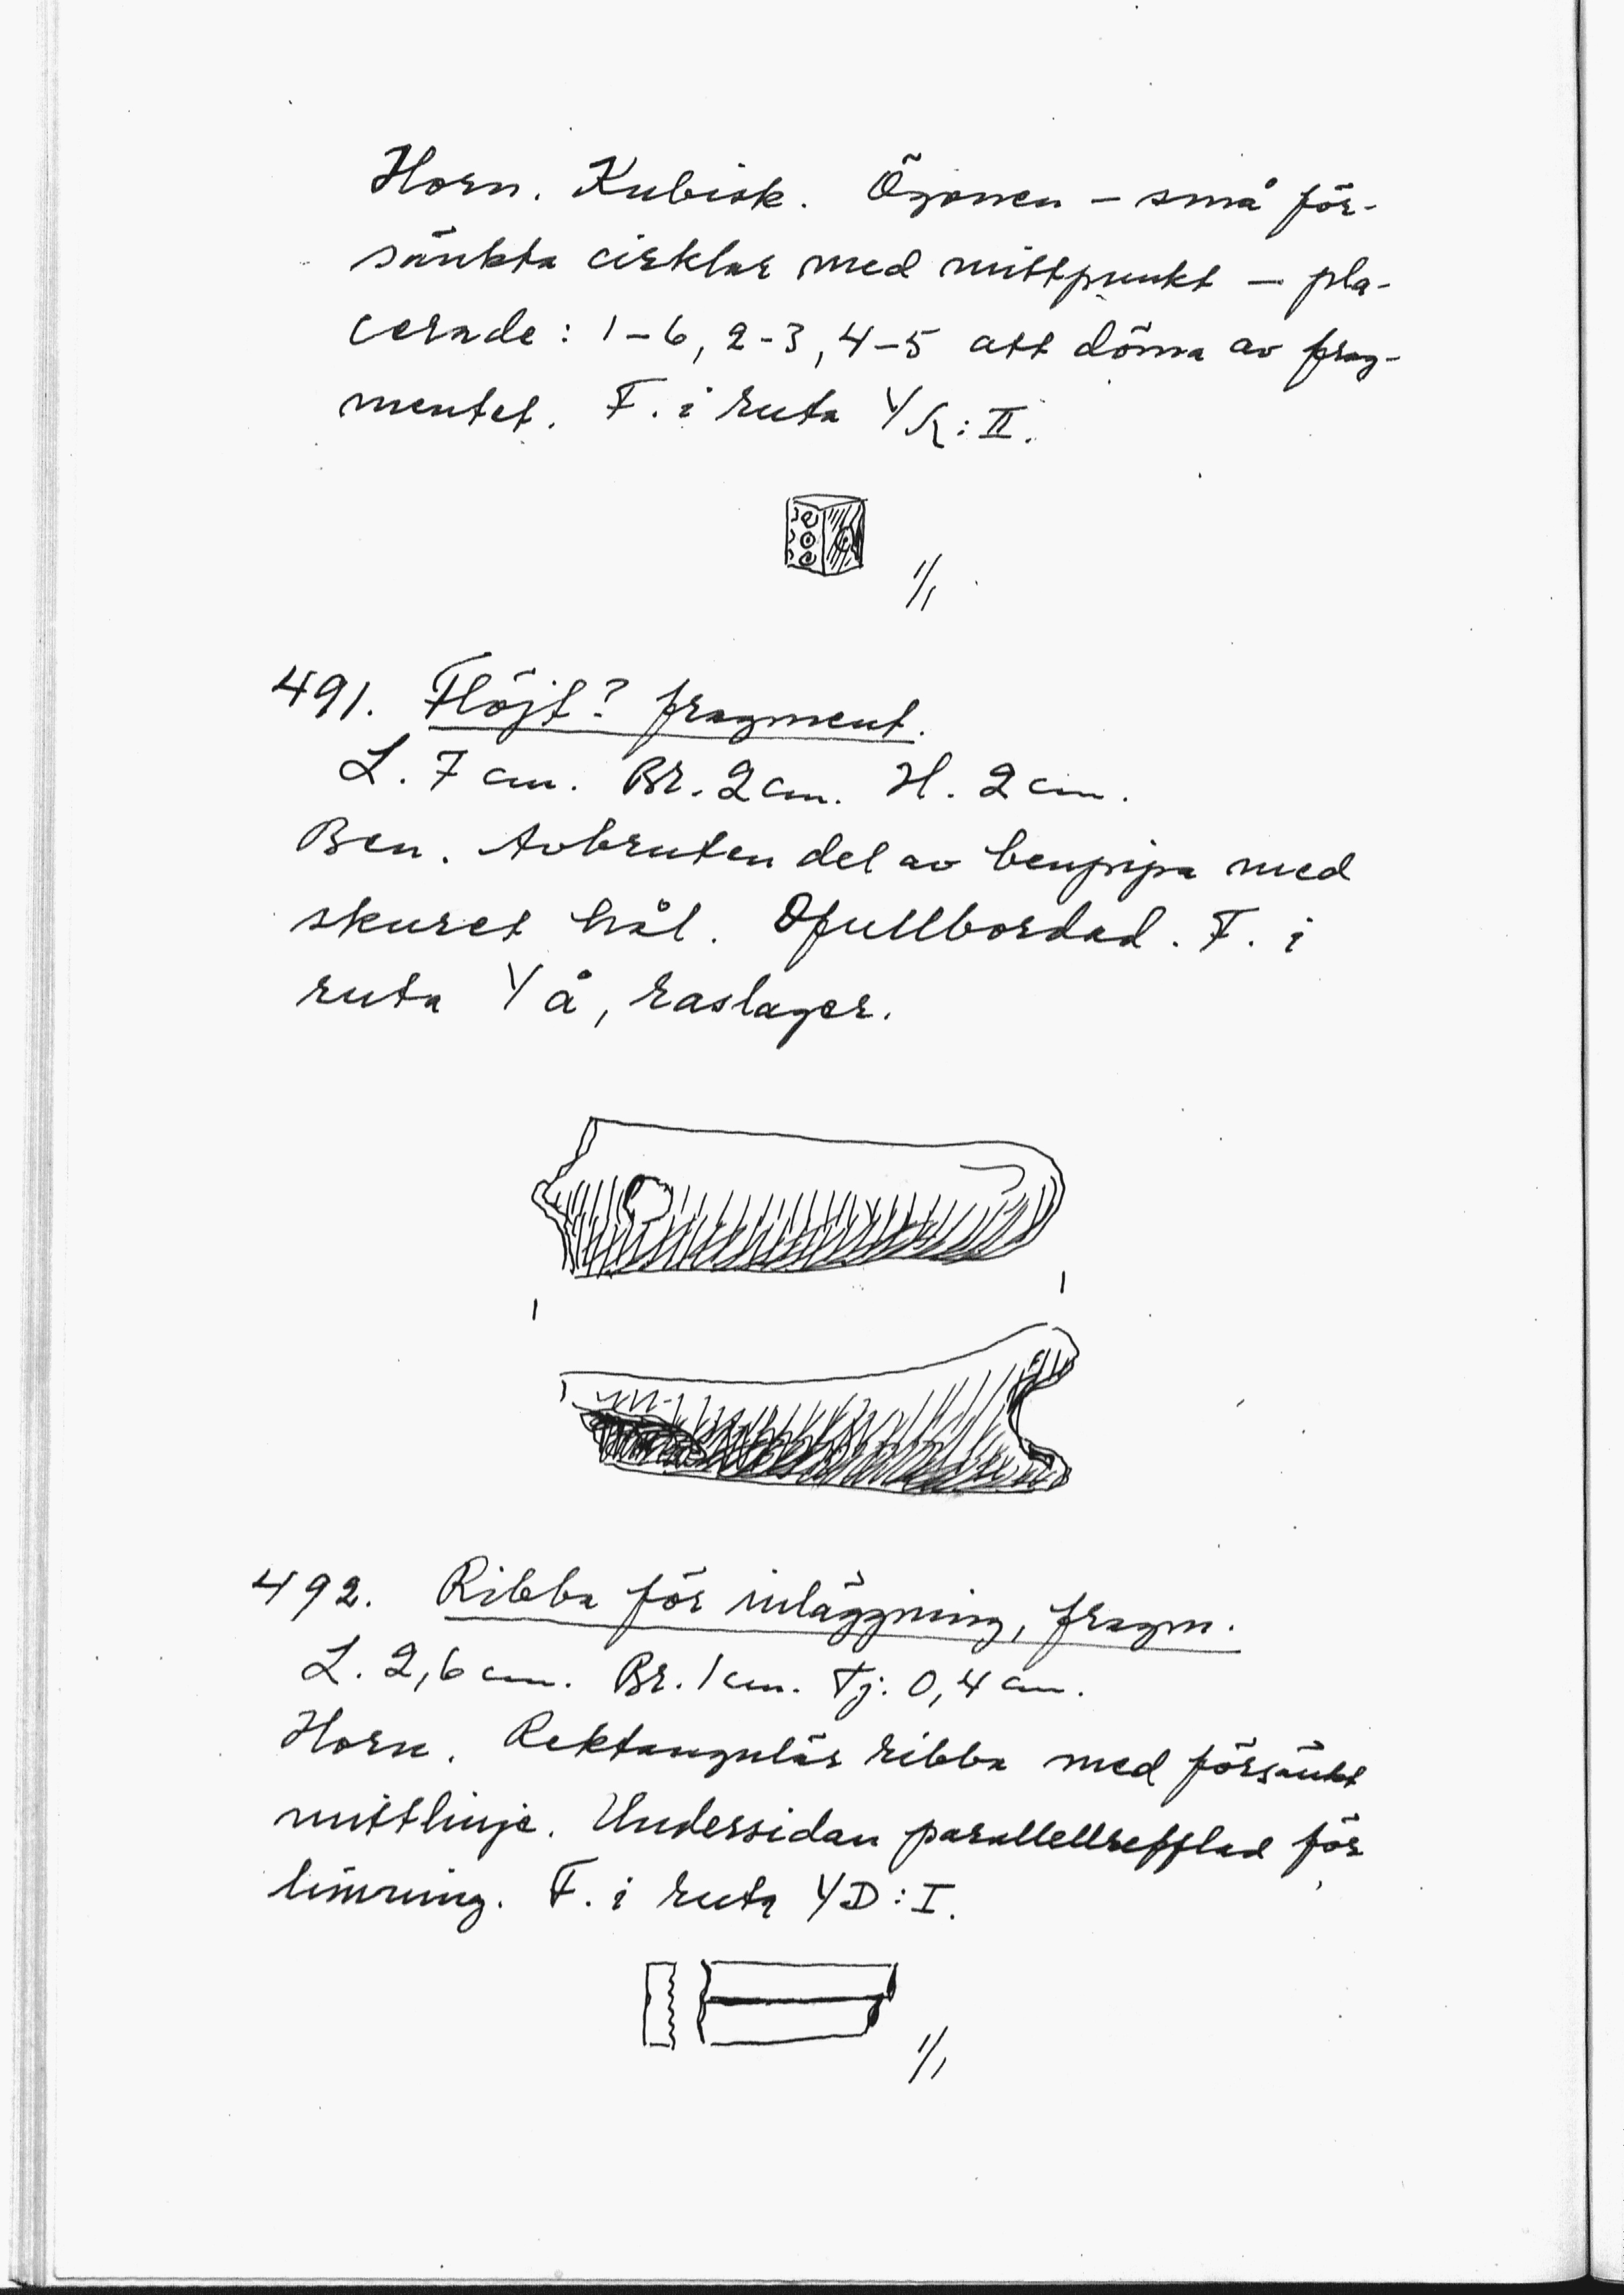 Horn. Kubisk. Ögonen – små för-
sänkta cirklar med mittpunkt – pla-
cerade: 1–6, 2-3, 4–5 att döma av frag-
mentet. F. i ruta YK:II.
1/1
491. Flöjt? fragment.
L. 7 cm. Br. 2 cm. H. 2 cm.
Ben. Avbruten del av benpipa med
skuret hål. Ofullbordad. F. i
ruta Yå, raslager.
492. Ribba för inläggning, fragm.
L. 2,6 cm. Br. 1 cm. Tj. 0,4 cm.
Horn. Rektangulär ribba med försänkt
mittlinje. Undersidan parallellrefflad för
limning. F. i ruta YD:I.
1/1